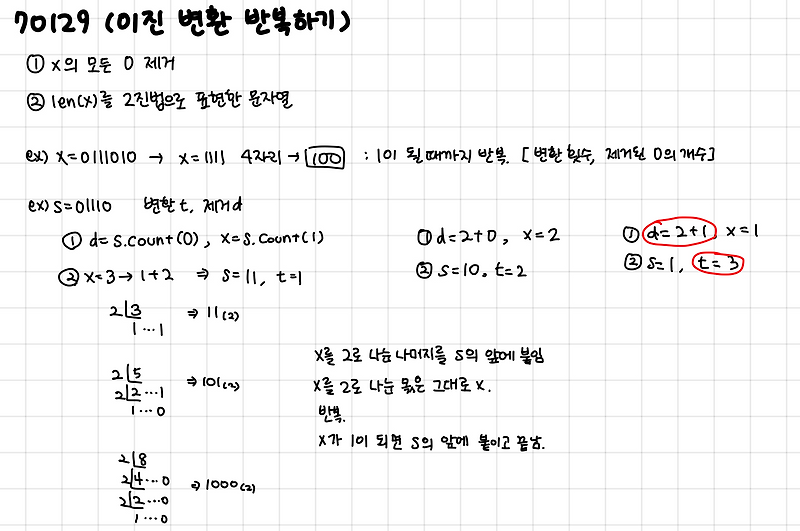 70129 (이진 변환 반복하기)
① x의 모든 0 제거
② len(x)를 2진법으로 표현한 문자열
ex) x=0111010 → x=1111 4자리 → 100 : 1이 될때까지 반복. [변환 횟수, 제거된 0의 개수]
ex) s=01110 변환 t, 제거 d
① d= s.count(0), x=s.count(1)
② x=3→ 1+2 ⇒ s=11, t=1
① d=2+0, x=2
② s=10, t=2
① d=2+1, x=1
② s=1, t=3
2 3 ⇒ 11(2)
1 ... 1
2 5
2 2 ... 1 ⇒ 101(2)
1 ... 0
x를 2로 나눈 나머지를 s의 앞에 붙임
x를 2로 나눈 몫은 그대로 x.
반복.
x가 1이 되면 s의 앞에 붙이고 끝남.
2 8
2 4 ... 0 ⇒ 1000(2)
2 2 ... 0
1 ... 0